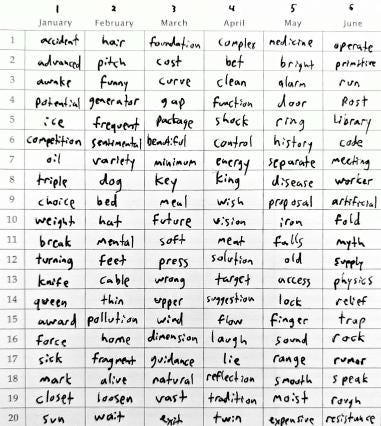 1 2 3 4 5 6
January February March April May June
1 accident hair foundation complex medicine operate
2 advanced pitch cost bet bright primitive
3 awake funny curve clean alarm run
4 potential generator gap function door Post
5 ice frequent package shock ring Library
6 competition sentimental beautiful control history code
7 oil variety minimum energy separate meeting
8 triple dog key king disease worker
9 choice bed meal wish proposal artificial
10 weight hat future vision iron fold
11 break mental soft meat falls myth
12 turning feet press solution old supply
13 knife cable wrong target access physics
14 queen thin upper suggestion lock relief
15 award pollution wind flow finger trap
16 force home dimension laugh sound rock
17 sick fragment guidance lie range rumor
18 mark alive natural reflection smooth speak
19 closet loosen vast tradition moist rough
20 sun wait exit twin expensive resistance